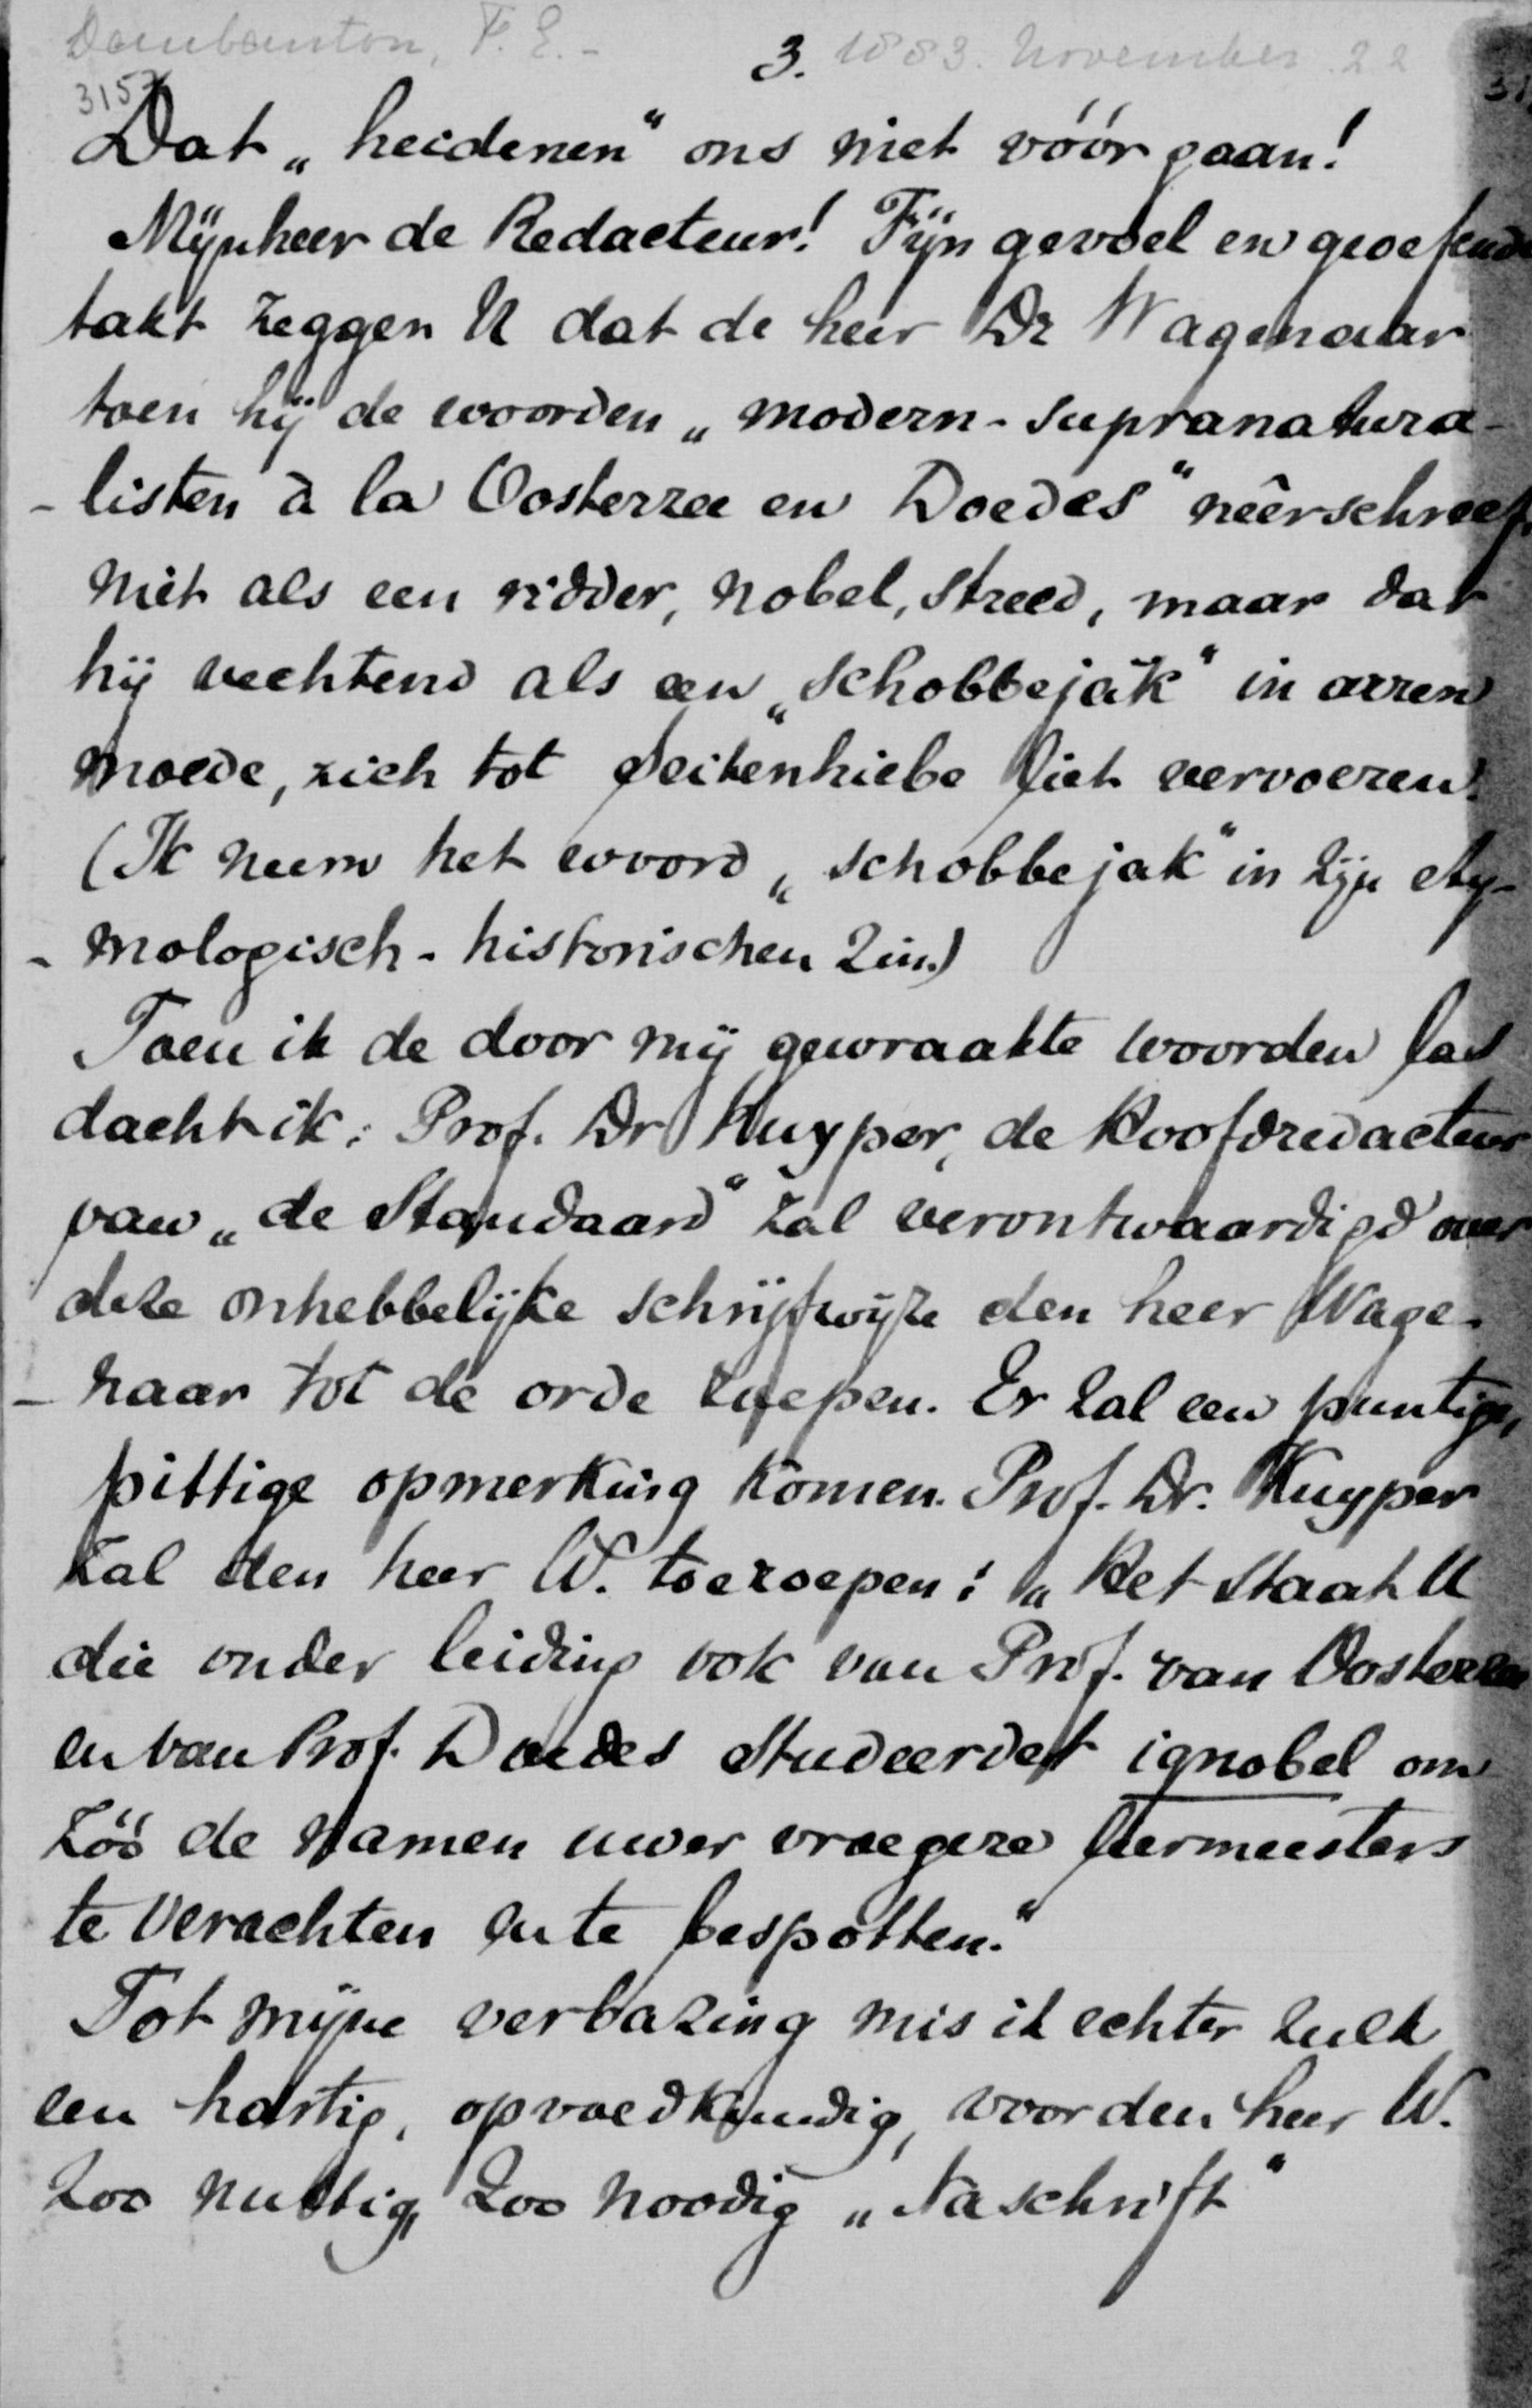 Daubanton, F. E. - 3. 1883. November. 22
3157
Dat „heidenen“ ons niet vóórgaan!
Mijnheer de Redacteur! Fijn gevoel en geoefende
takt zeggen U dat de heer Dr Wagenaar
toen hij de woorden „modern-supranatura-
-listen à la Oosterzee en Doedes“ neêrschreef,
niet als een ridder, nobel, streed, maar dat
hij vechtend als een „schobbejak“ in arren
moede, zich tot Seitenhiebe liet vervoeren.
(Ik neem het woord „schobbejak“ in zijn ety-
-mologisch-historischen zin.)
Toen ik de door mij gewraakte woorden las
dacht ik: Prof. Dr Kuyper, de Hoofdredacteur
van „de Standaard“ zal verontwaardigd over
deze onhebbelijke schrijfwijze den heer Wage-
-naar tot de orde roepen. Er zal een puntige,
pittige opmerking komen. Prof. Dr. Kuyper
zal den heer W. toeroepen: „Het staat U
die onder leiding ook van Prof. van Oosterzee
en van Prof. Doedes studeerdet ignobel om
zóó de namen uwer vroegere leermeesters
te verachten en te bespotten.“
Tot mijne verbazing mis ik echter zulk
een hartig, opvoedkundig, voor den heer W.
zoo nuttig, zoo noodig „Naschrift“